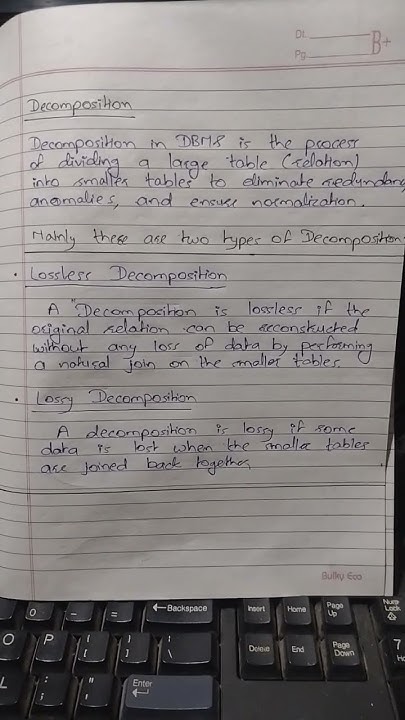 Dt.
Pg.
B+
Decomposition
Decomposition in DBMS is the process
of dividing a large table (relation)
into smaller tables to eliminate redundancy
anomalies, and ensure normalization.
Mainly there are two types of Decomposition
• Lossless Decomposition
A "Decomposition is lossless if the
original relation can be reconstructed
without any loss of data by performing
a natural join on the smaller tables.
• Lossy Decomposition
A decomposition is lossy if some
data is lost when the smaller tables
are joined back together.
Bulky Eco
0 - = ← Backspace Insert Home Page Up Num Lock
O P { [ } ] | \ Delete End Page Down 7
L : ; " ' Enter